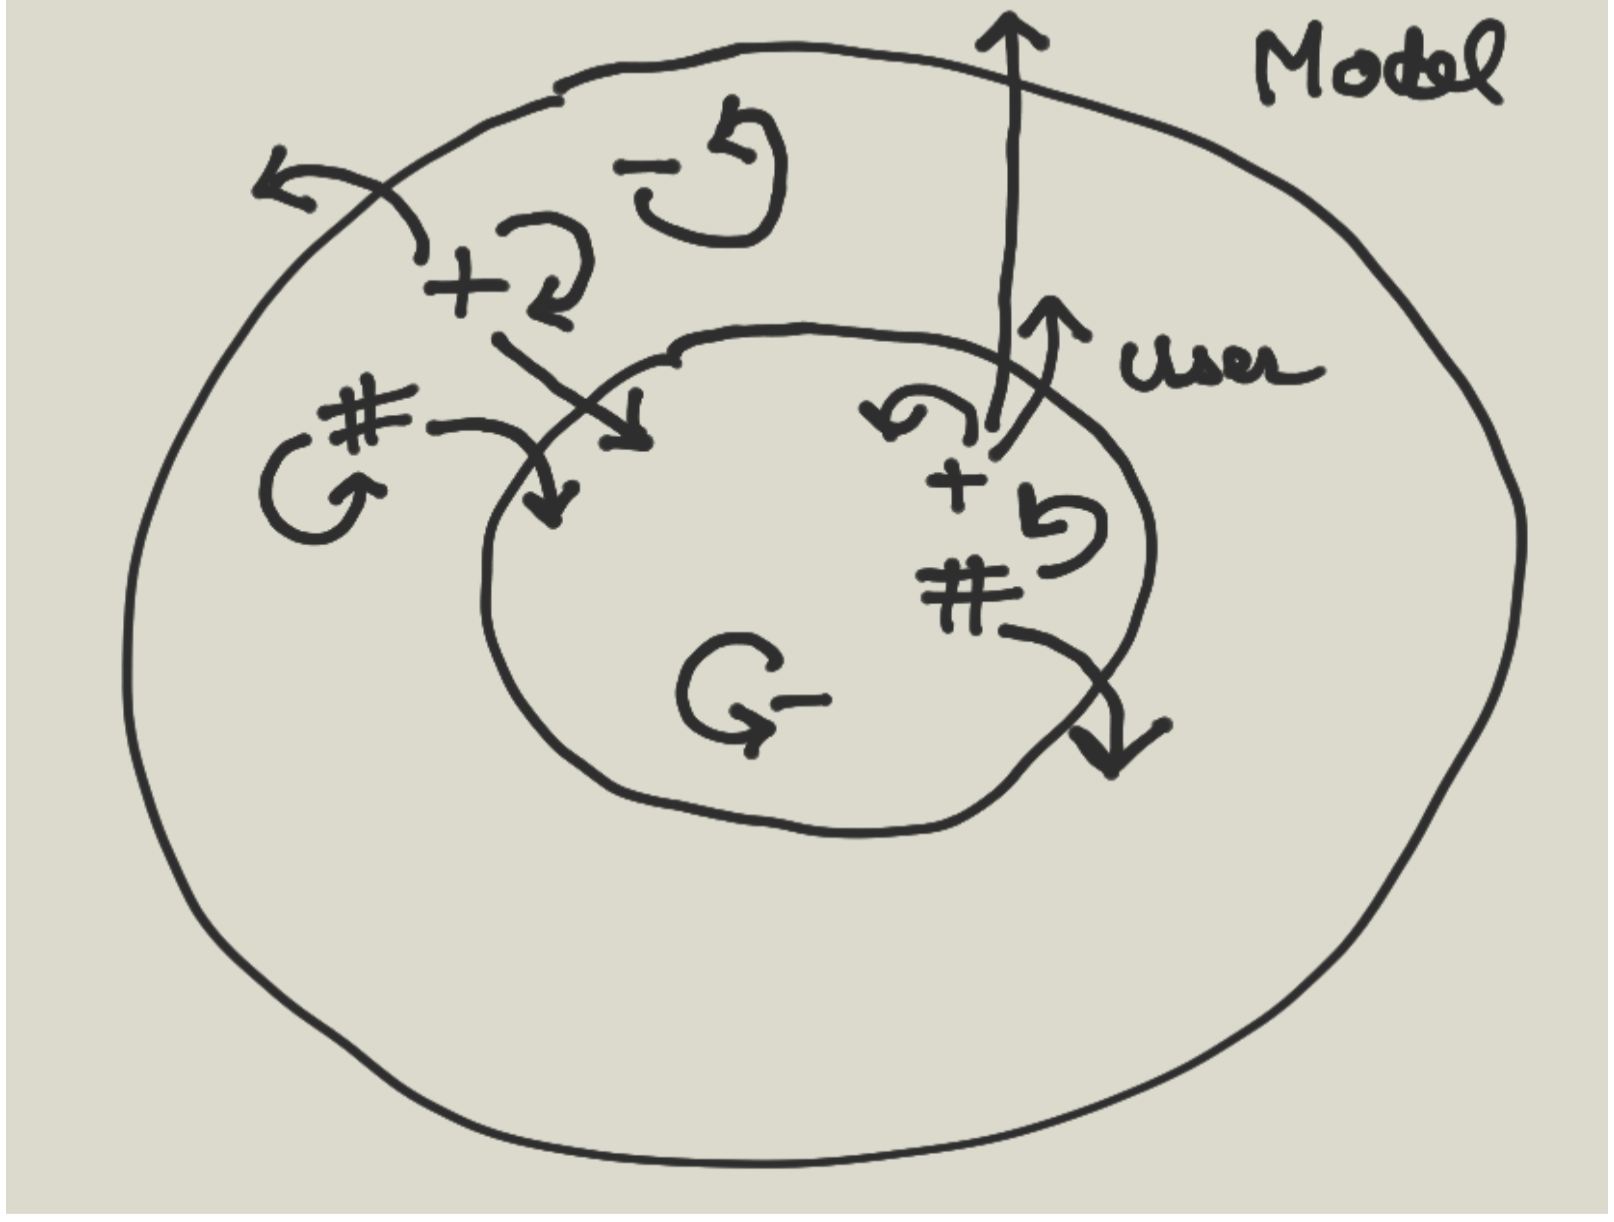 Model
-
+
User
#
+
#
-